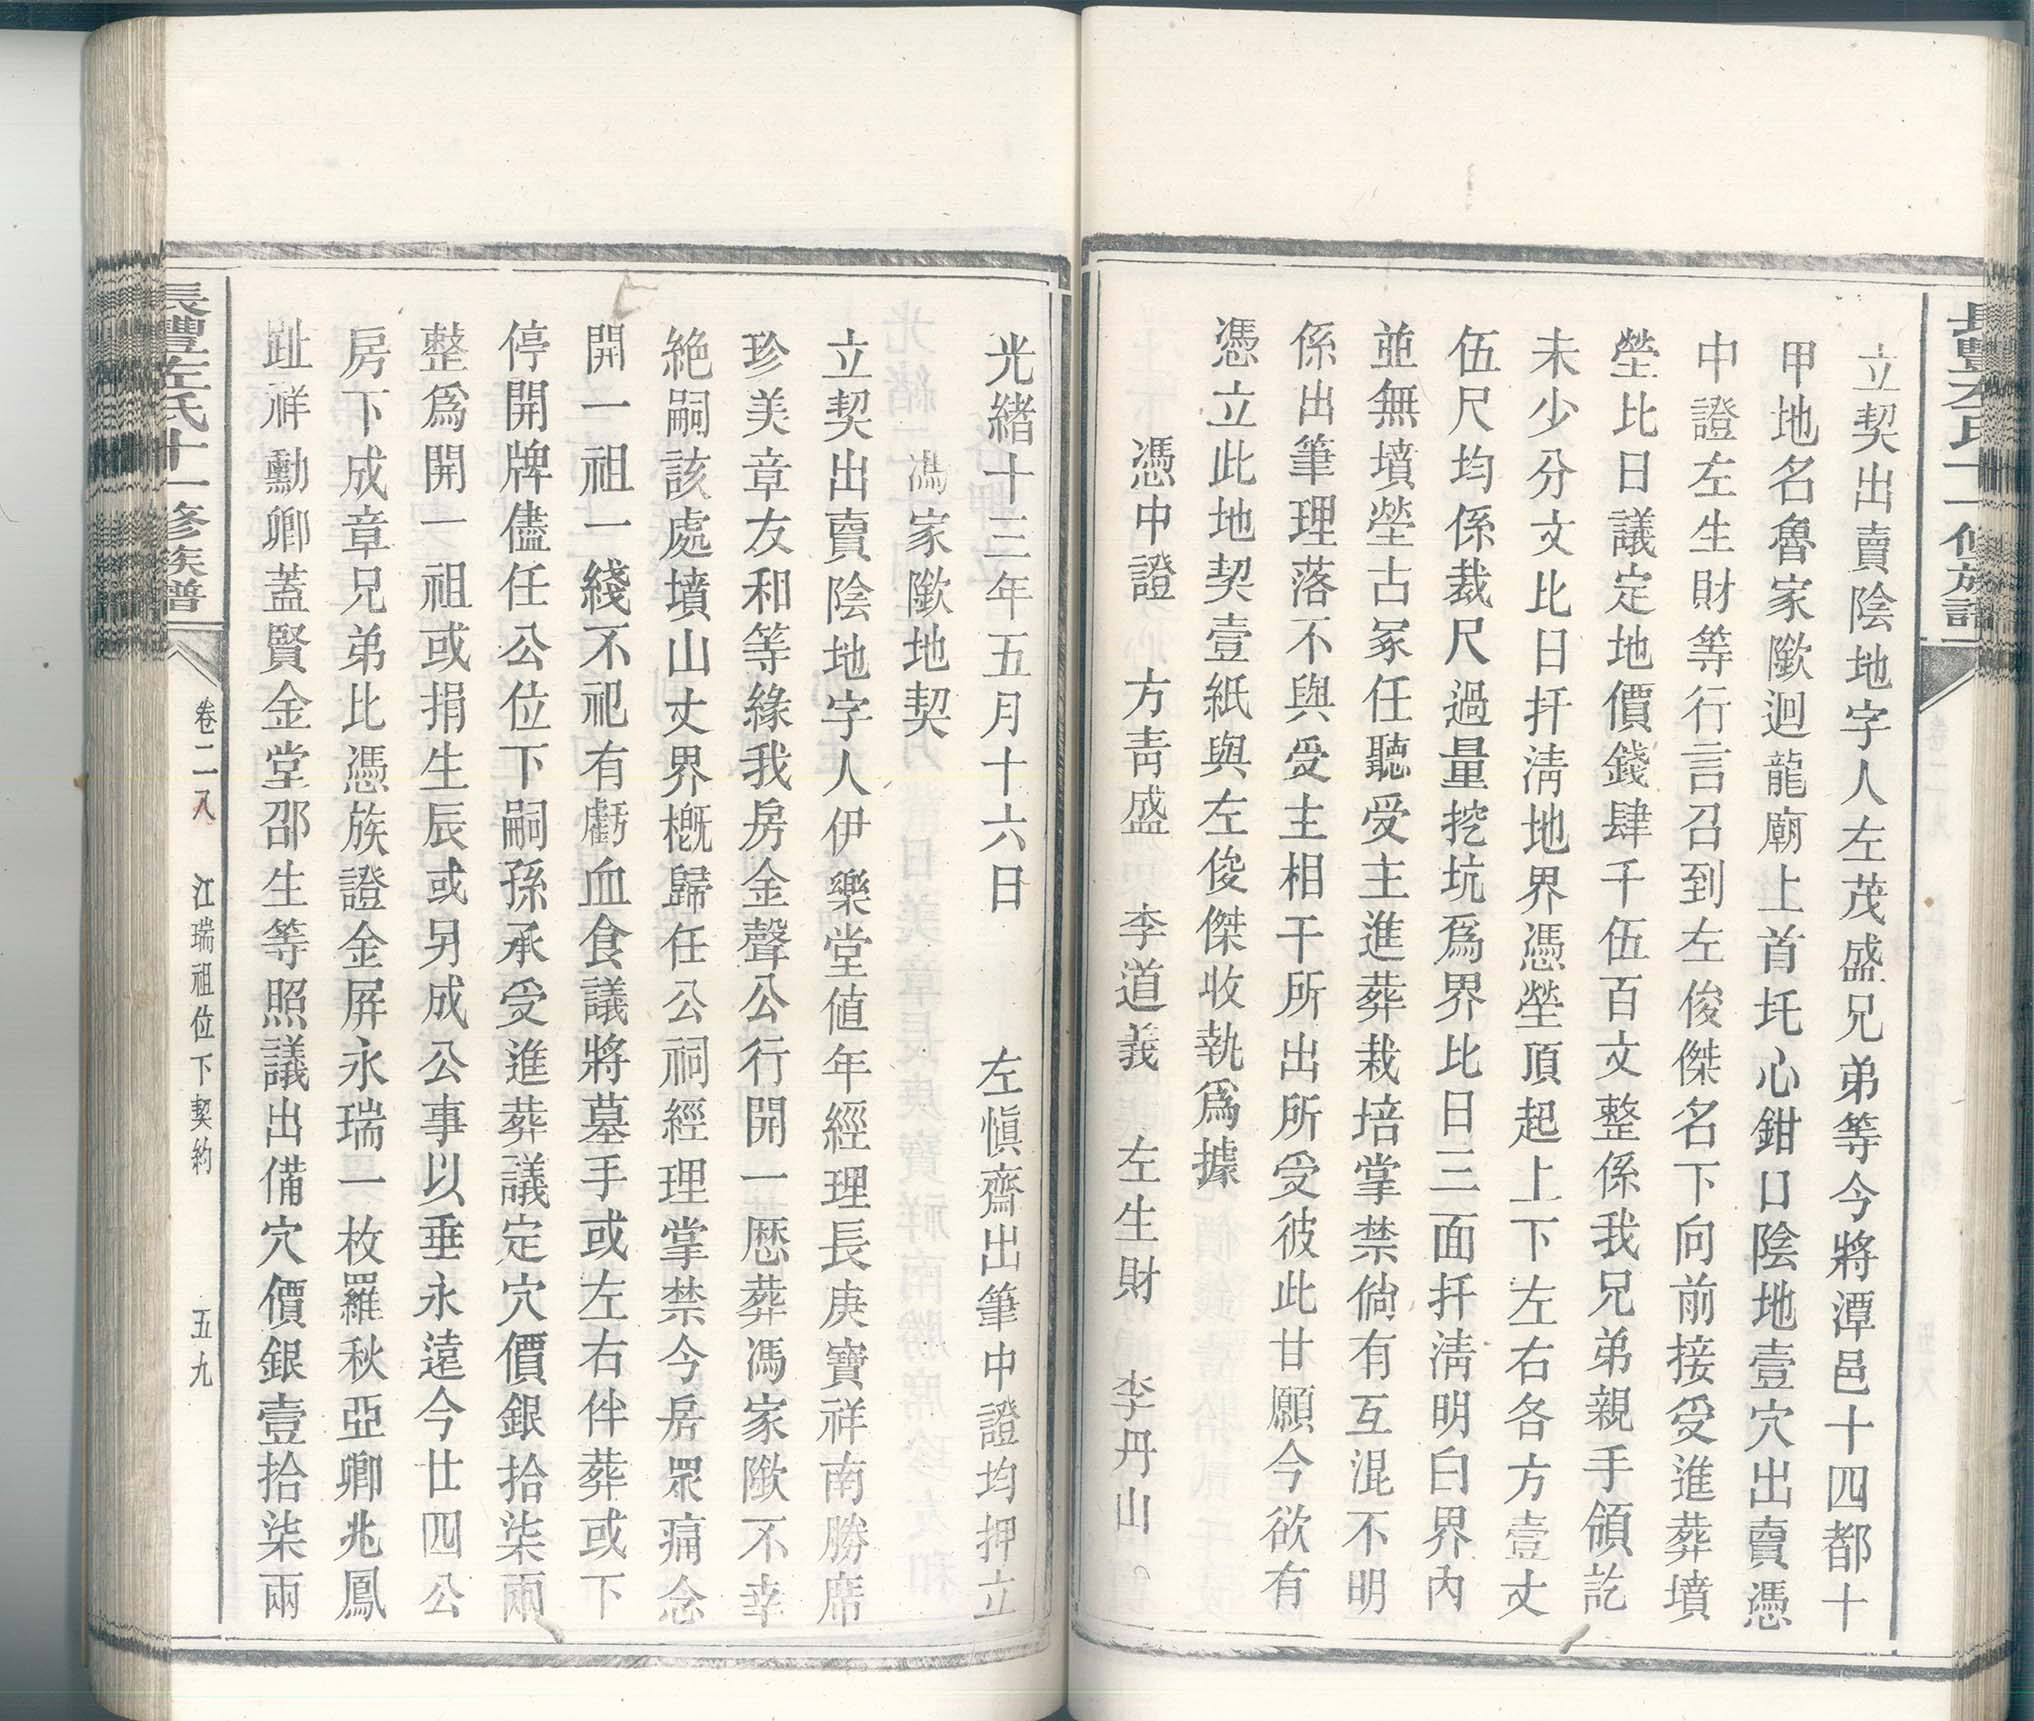 長豐左氏十一修族譜
立契出賣陰地字人左茂盛兄弟等今將潭邑十四都十
甲地名魯家隞迴龍廟上首圫心鉗口陰地壹穴出賣憑
中證左生財等行言召到左俊傑名下向前接受進葬墳
塋比日議定地價錢肆千伍百文整係我兄弟親手領訖
未少分文比日扦清地界憑塋頂起上下左右各方壹丈
伍尺均係裁尺過量挖坑為界比日三面扦清明白界內
並無墳塋古冢任聽受主進葬栽培掌禁倘有互混不明
係出筆理落不與受主相干所出所受彼此甘願今欲有
憑立此地契壹紙與左俊傑收執為據
憑中證 方青盛 李道義 左生財 李丹山
光緒十三年五月十六日 左愼齋出筆中證均押立
馮家隞地契
立契出賣陰地字人伊樂堂值年經理長庚寶祥南勝席
珍美章友和等緣我房金聲公行開一厯葬馮家隞不幸
絶嗣該處墳山丈界槪歸任公祠經理掌禁今房眾痛念
開一祖一綫不祀有虧血食議將墓手或左右伴葬或下
停開牌儘任公位下嗣孫承受進葬議定穴價銀拾柒兩
整為開一祖或捐生辰或另成公事以垂永遠今廿四公
房下成章兄弟比憑族證金屏永瑞一枚羅秋亞卿兆鳳
趾祥勳卿蓋賢金堂邵生等照議出備穴價銀壹拾柒兩
長豐左氏十一修族譜 卷二八 江瑞祖位下契約 五九